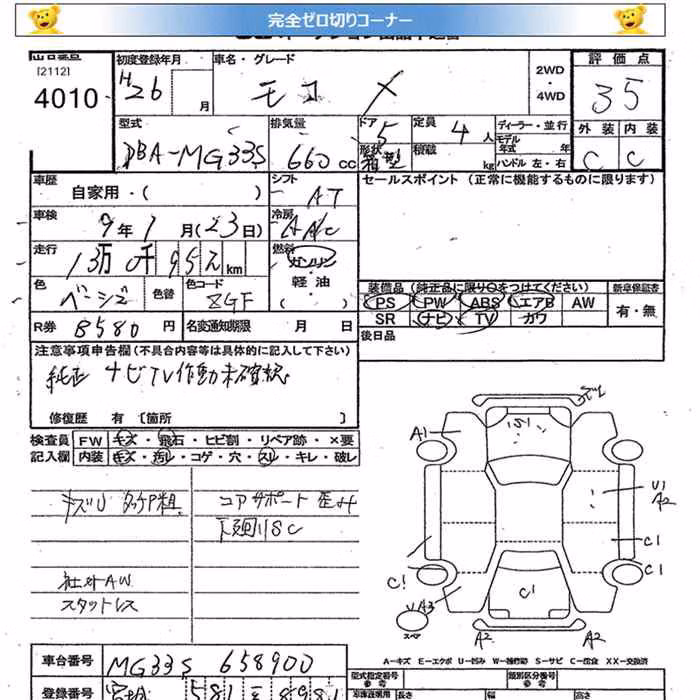 完全ゼロ切りコーナー
[2112]
4010
初度登録年月
H26 月
車名・グレード
モコ X
2WD
・
4WD
評価点
3 5
外装 内装
C C
型式
DBA-MG33S
排気量
660 cc
ドア 5
形状 箱型
定員 4 人
積載 kg
ディーラー・並行
モデル年式 年
ハンドル 左・右
車歴
自家用・( )
シフト
AT
セールスポイント (正常に機能するものに限ります)
車検
9年1月(23日)
冷房
AAC
走行
km
燃料
ガソリン
・
軽油
( )
色
ベージュ
色替
色コード
R券 8580 円
名変通知期限 月 日
装備品 (純正品に限り○をつけてください)
PS PW ABS エアB AW
SR ナビ TV カワ
新車保証書
有・無
後日品
注意事項申告欄(不具合内容等は具体的に記入して下さい)
純正 ナビTV作動未確認
修復歴 有 [箇所 ]
検査員記入欄
FW キズ・飛石・ヒビ割・リペア跡・×要
内装 キズ・汚レ・コゲ・穴・スレ・キレ・破レ
キズU タッチP粗
コアサポート歪み
下廻りSC
社外AW
スタットレス
A1
S1
U1
A2
C1
C1
C1
C1
UA3
スペア
A2
A2
A-キズ E-エクボ U-凹み W-補修跡 S-サビ C-腐食 XX-交換済
車台番号
MG33S 658900
型式指定番号
参考
類別区分番号
参考
登録番号
宮城 581
長さ
幅
高さ